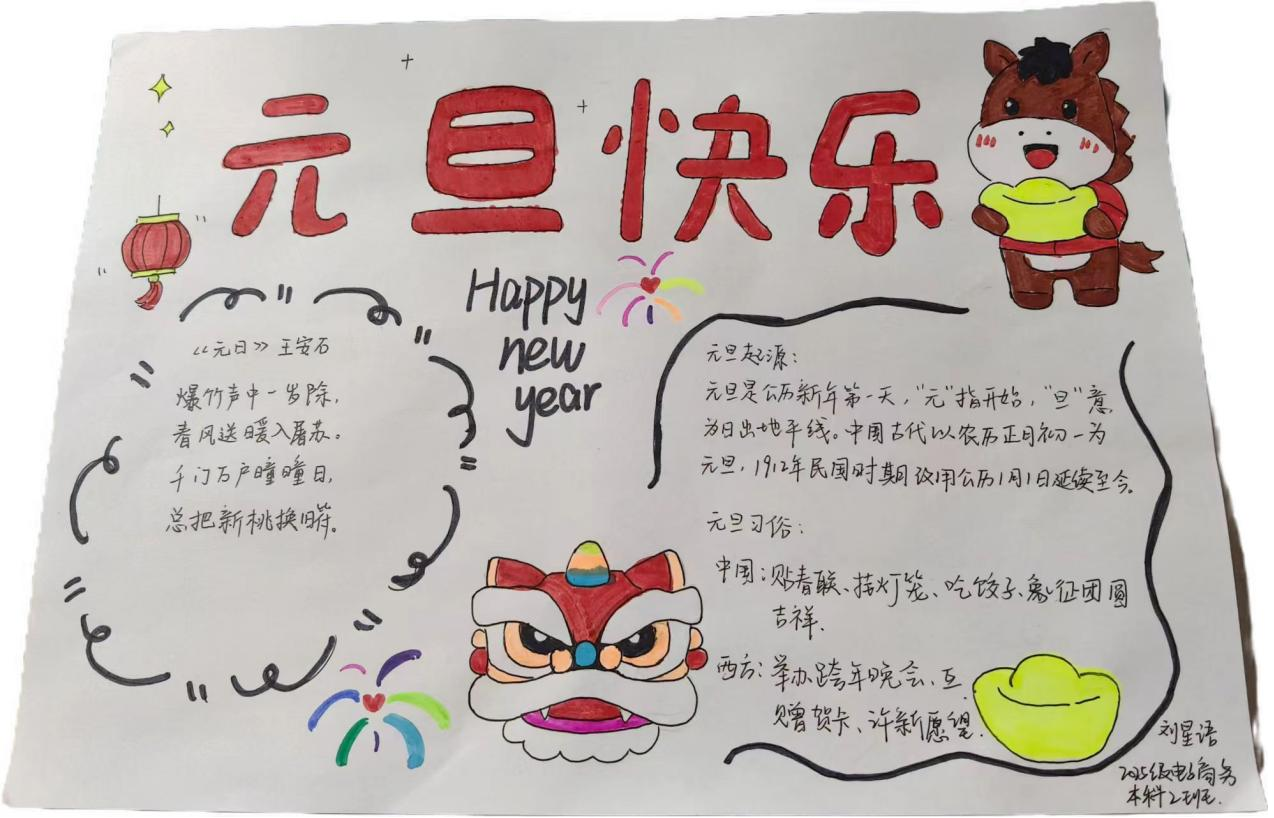 元旦快乐
Happy
new
year
《元日》王安石
爆竹声中一岁除，
春风送暖入屠苏。
千门万户曈曈日，
总把新桃换旧符。
元旦起源：
元旦是公历新年第一天，"元"指开始，"旦"意
为日出地平线。中国古代以农历正月初一为
元旦，1912年民国时期改用公历1月1日延续至今。
元旦习俗：
中国：贴春联、挂灯笼、吃饺子、象征团圆
吉祥.
西方：举办跨年晚会、互
赠贺卡、许新愿望.
刘星语
2025级电子商务
本科2班.